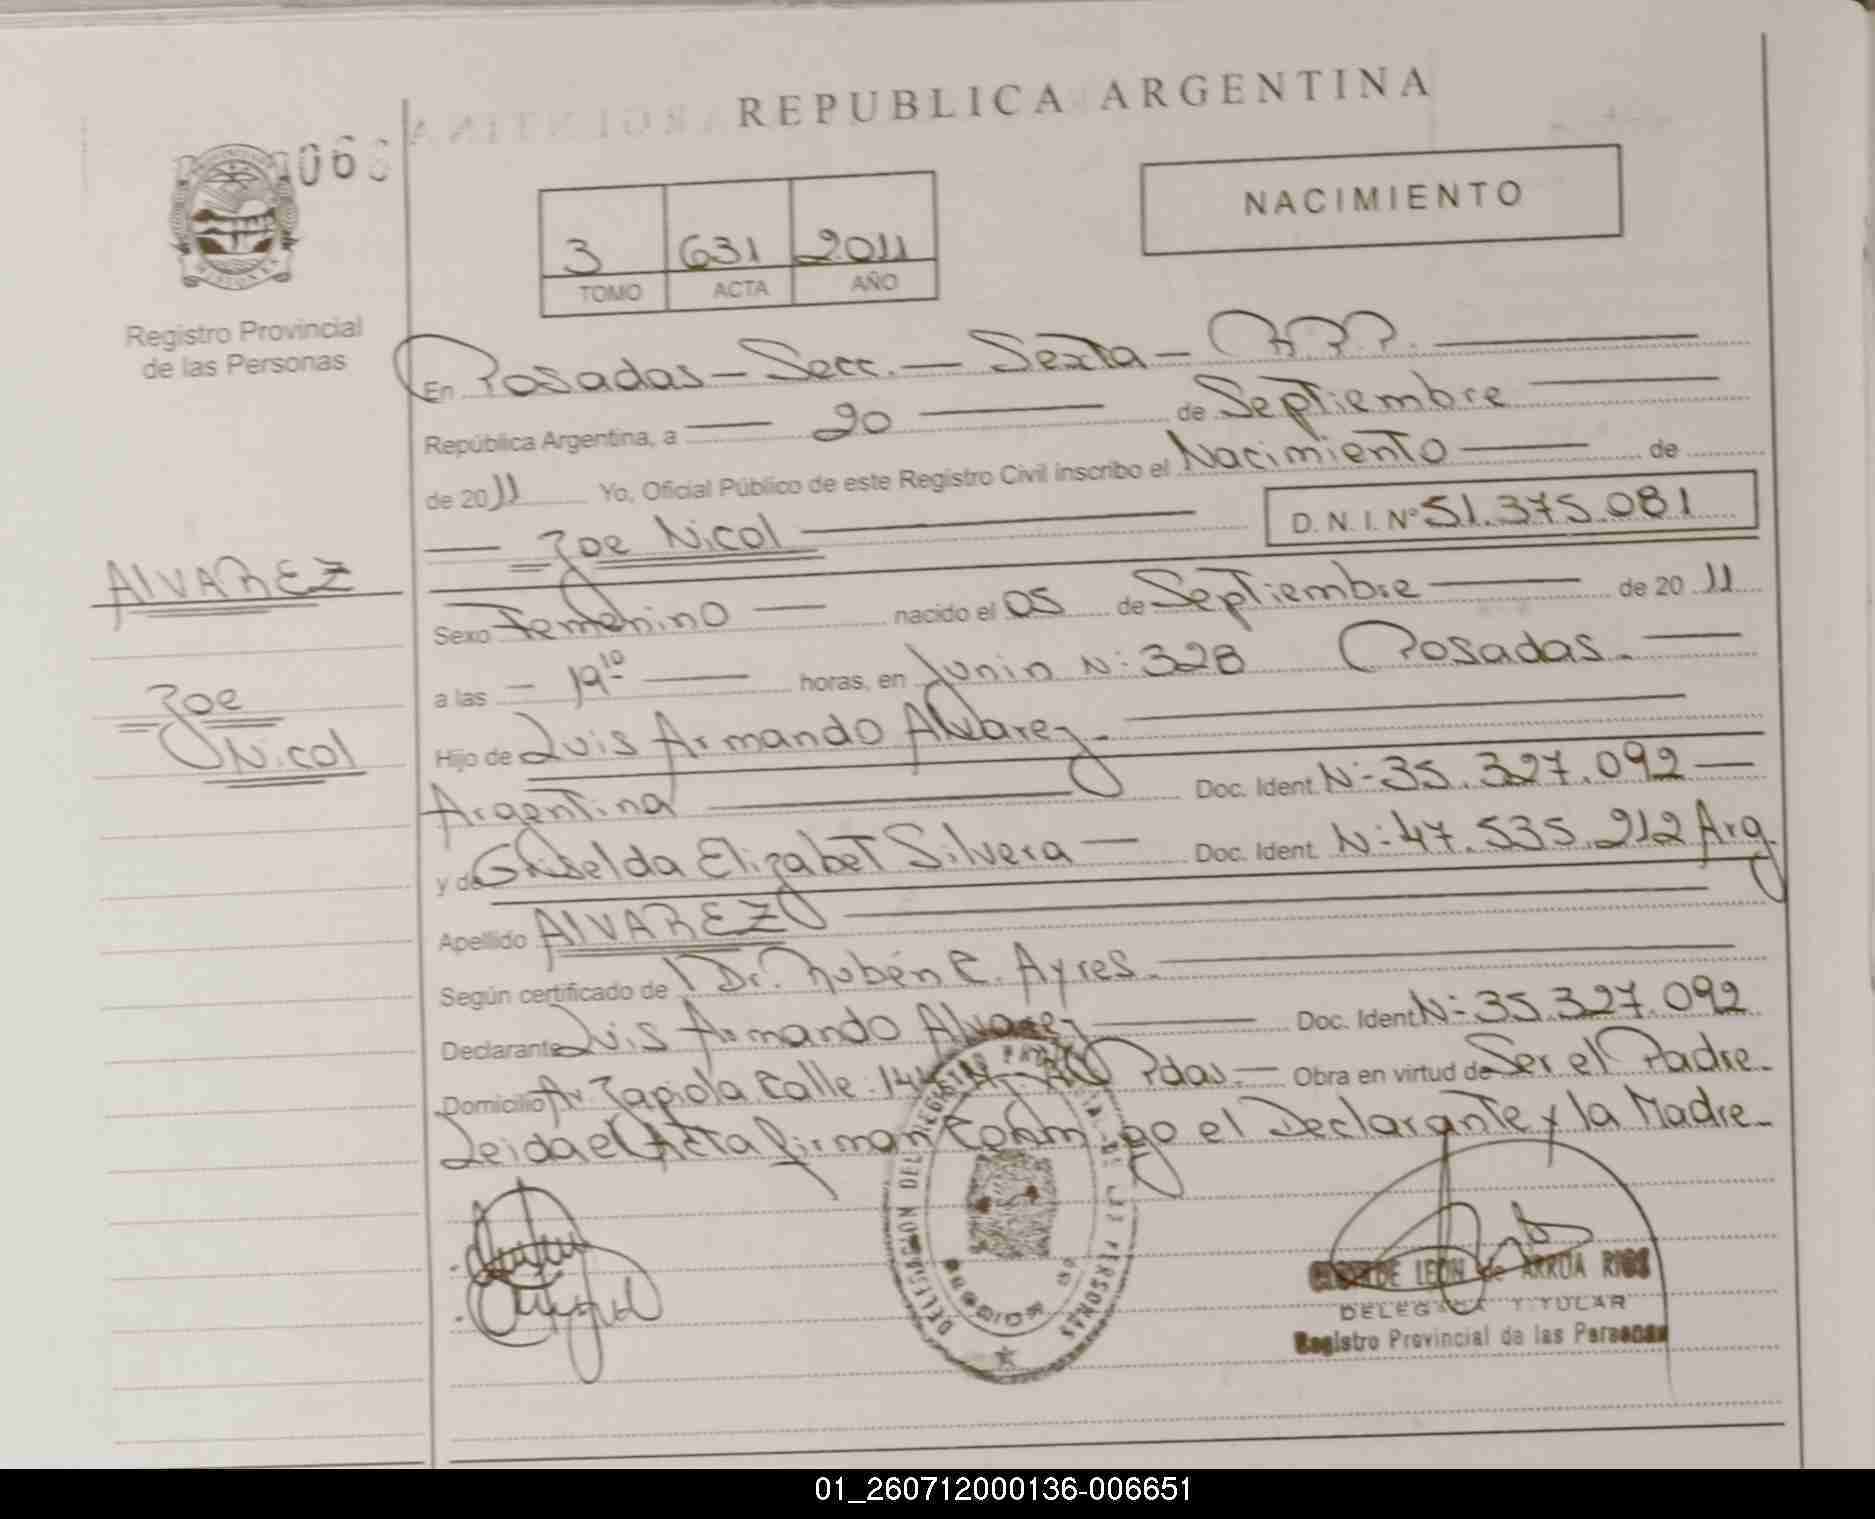 REPUBLICA ARGENTINA
066
3 631 2011
TOMO ACTA AÑO
NACIMIENTO
Registro Provincial
de las Personas
En Posadas - Secc. - Sexta - R.P.P.
República Argentina, a 20 de Septiembre
de 2011 Yo, Oficial Público de este Registro Civil inscribo el Nacimiento de
Zoe Nicol D.N.I. Nº 51.375.081
ALVAREZ
Zoe
Nicol
Sexo Femenino nacido el 05 de Septiembre de 2011
a las - 19 10 horas, en Junin N: 328 Posadas.-
Hijo de Luis Armando Alvarez.-
Argentina Doc. Ident. N:- 35.327.092
y de Griselda Elizabet Silvera Doc. Ident. N:- 47.535.212 Arg.
Apellido ALVAREZ
Según certificado de Dr. Rubén C. Ayres.-
Declarante Luis Armando Alvarez Doc. Ident. N:- 35.327.092
Domicilio Av. Zapiola Calle Pdas.- Obra en virtud de Ser el Padre.-
Leida el Acta firman conmigo el Declarante y la Madre.-
DELEGACION DEL REGISTRO PROVINCIAL DE LAS PERSONAS
LEON de ARRUA RIOS
DELEGADA TITULAR
Registro Provincial de las Personas
01_260712000136-006651